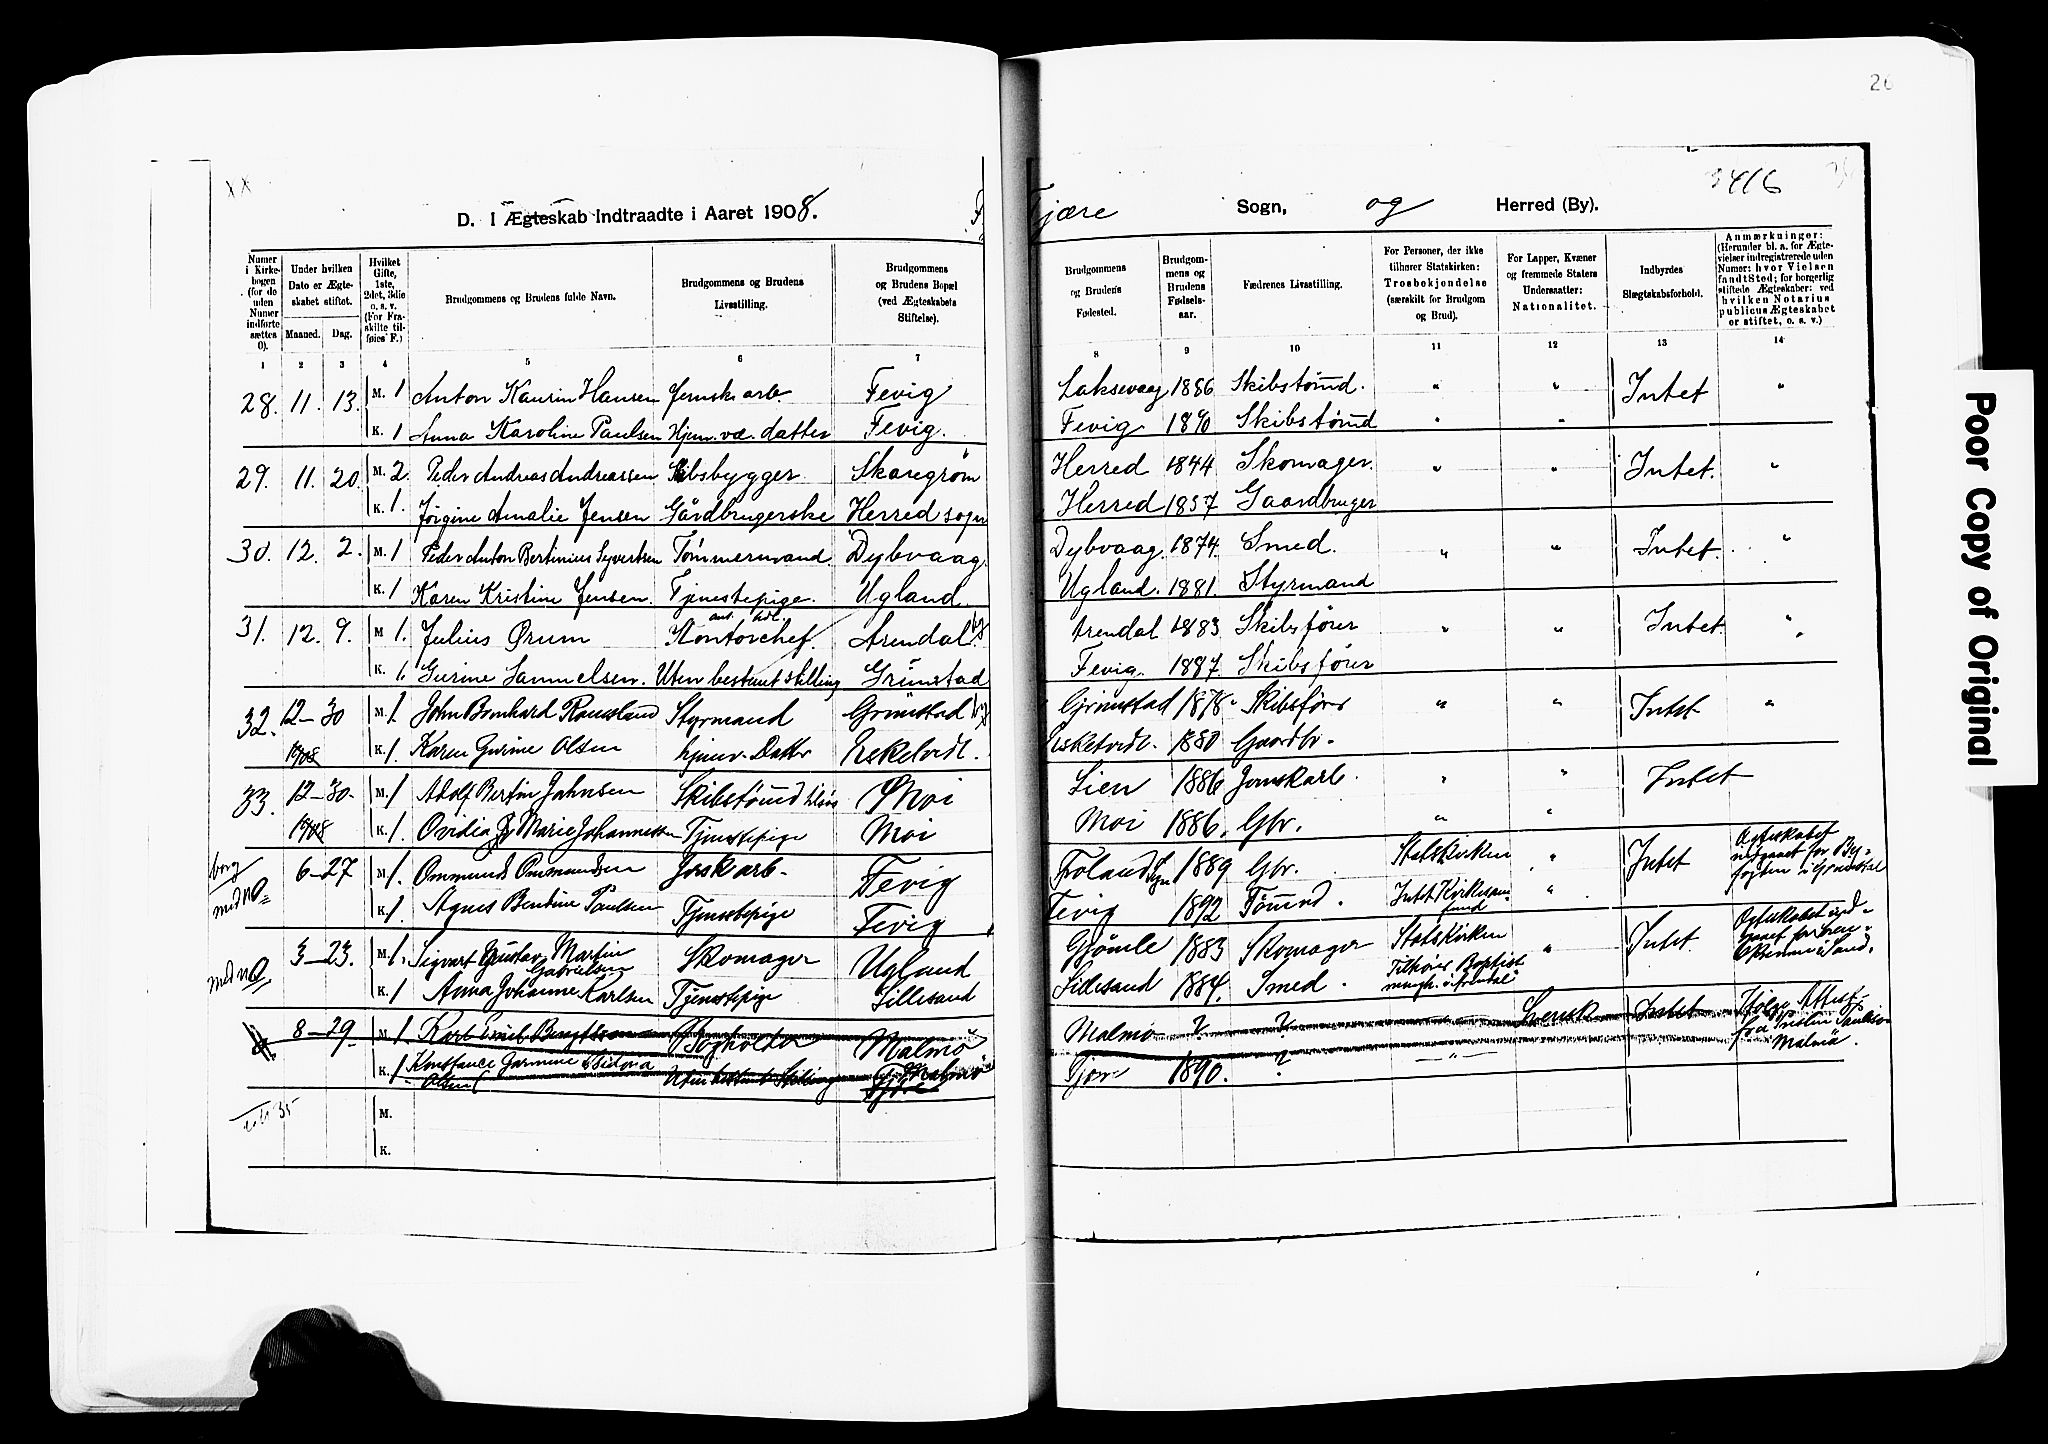 26
3416
D. I Ægteskab Indtraadte i Aaret 1908.
Fjære Sogn, og Herred (By).
Numer i Kirkebogen (for de uden Numer indførte sættes 0).
Under hvilken Dato er Ægteskabet stiftet.
Maaned. Dag.
Hvilket Gifte, 1ste, 2det, 3die o. s. v. (For Fraskilte tilføies F.)
Brudgommens og Brudens fulde Navn.
Brudgommens og Brudens Livsstilling.
Brudgommens og Brudens Bopæl (ved Ægteskabets Stiftelse).
Brudgommens og Brudens Fødested.
Brudgommens og Brudens Fødselsaar.
Fædrenes Livsstilling.
For Personer, der ikke tilhører Statskirken: Trosbekjendelse (særskilt for Brudgom og Brud).
For Lapper, Kvæner og fremmede Staters Undersaatter: Nationalitet.
Indbyrdes Slægtskabsforhold.
Anmærkninger: (Herunder bl. a. for Ægtevielser indregistrerede uden Numer: hvor Vielsen fandt Sted; for borgerlig stiftede Ægteskaber: ved hvilken Notarius publicus Ægteskabet er stiftet, o. s. v.)
1 2 3 4 5 6 7 8 9 10 11 12 13 14
28. 11. 13. M. 1 Anton Kaurin Hansen Jernsk. arb. Fevig Laksevaag 1886 Skibstømd. " " Intet "
K. 1 Anna Karoline Paulsen Hjem. væ. datter Fevig. Fevig 1890 Skibstømd " "
29. 11. 20. M. 2. Peder Andreas Andreassen Skibsbygger Skaregrøm Herred 1844 Skomager. " " Intet. "
K. 1. Jørgine Amalie Jensen Gårdbrugerske Herred sogn Herred 1857 Gaardbruger
30. 12. 2. M. 1 Peder Anton Bertinius Syvertsen Tømmermand. Dybvaag. Dybvaag. 1874. Smed. " " Intet. "
K. 1 Karen Kristine Jensen. Tjenestepige. Ugland. Ugland. 1881. Styrmand
31. 12. 9. M. 1. Julius Ørum Kontorchef. Arendal Arendal 1883 Skibsfører " " Intet. "
K. 1. Gurine Samuelsen. Uten bestemt stilling Grimstad Fevig. 1887. Skibsfører
32. 12–30 M. 1. John Bernhard Ramsland Styrmand Grimstad Grimstad 1878 Skibsfører " " Intet "
1908 K. 1. Karen Gurine Olsen hjemv. Datter Eskelvidt. Eskelvidt. 1880 Gaardbr.
33. 12–30. M. 1 Adolf Bertin Jahnsen Skibstømd Moi Lien 1886 Jernskarb. " " Intet
1908 K. 1. Ovidia Marie Johannessen Tjenestepige Moi Moi 1886. Gbr. " "
borg
med No 0 6–27 M. 1. Ommund Ommundsen Jerskarb. Fevig Froland 1889 Gbr. Statskirken " Intet Ægteskabet indgaaet for Byfogden i Grimstad
K. 1. Agnes Bentine Paulsen Tjenestepige Fevig Fevig 1892 Tømmd. Intet Kirkesamfund "
med No 0 3–23. M. 1. Sigvart Gustav Martin Gabrielsen Skomager Ugland Gjømle 1883 Skomager Statskirken " Intet.
K. 1 Anna Johanne Karlsen Tjenestepige Lillesand Lillesand 1884. Smed. Tilhører Baptist
8–29 M. 1 Karl Emil Bengtsson Bogholder Malmø Malmø ? ? Svensk Intet
K. 1 Konstance Olsen Uten bestemt Stilling Malmø Fjære Fjære 1890. ? " Malmø.
M.
K.
Poor Copy of Original